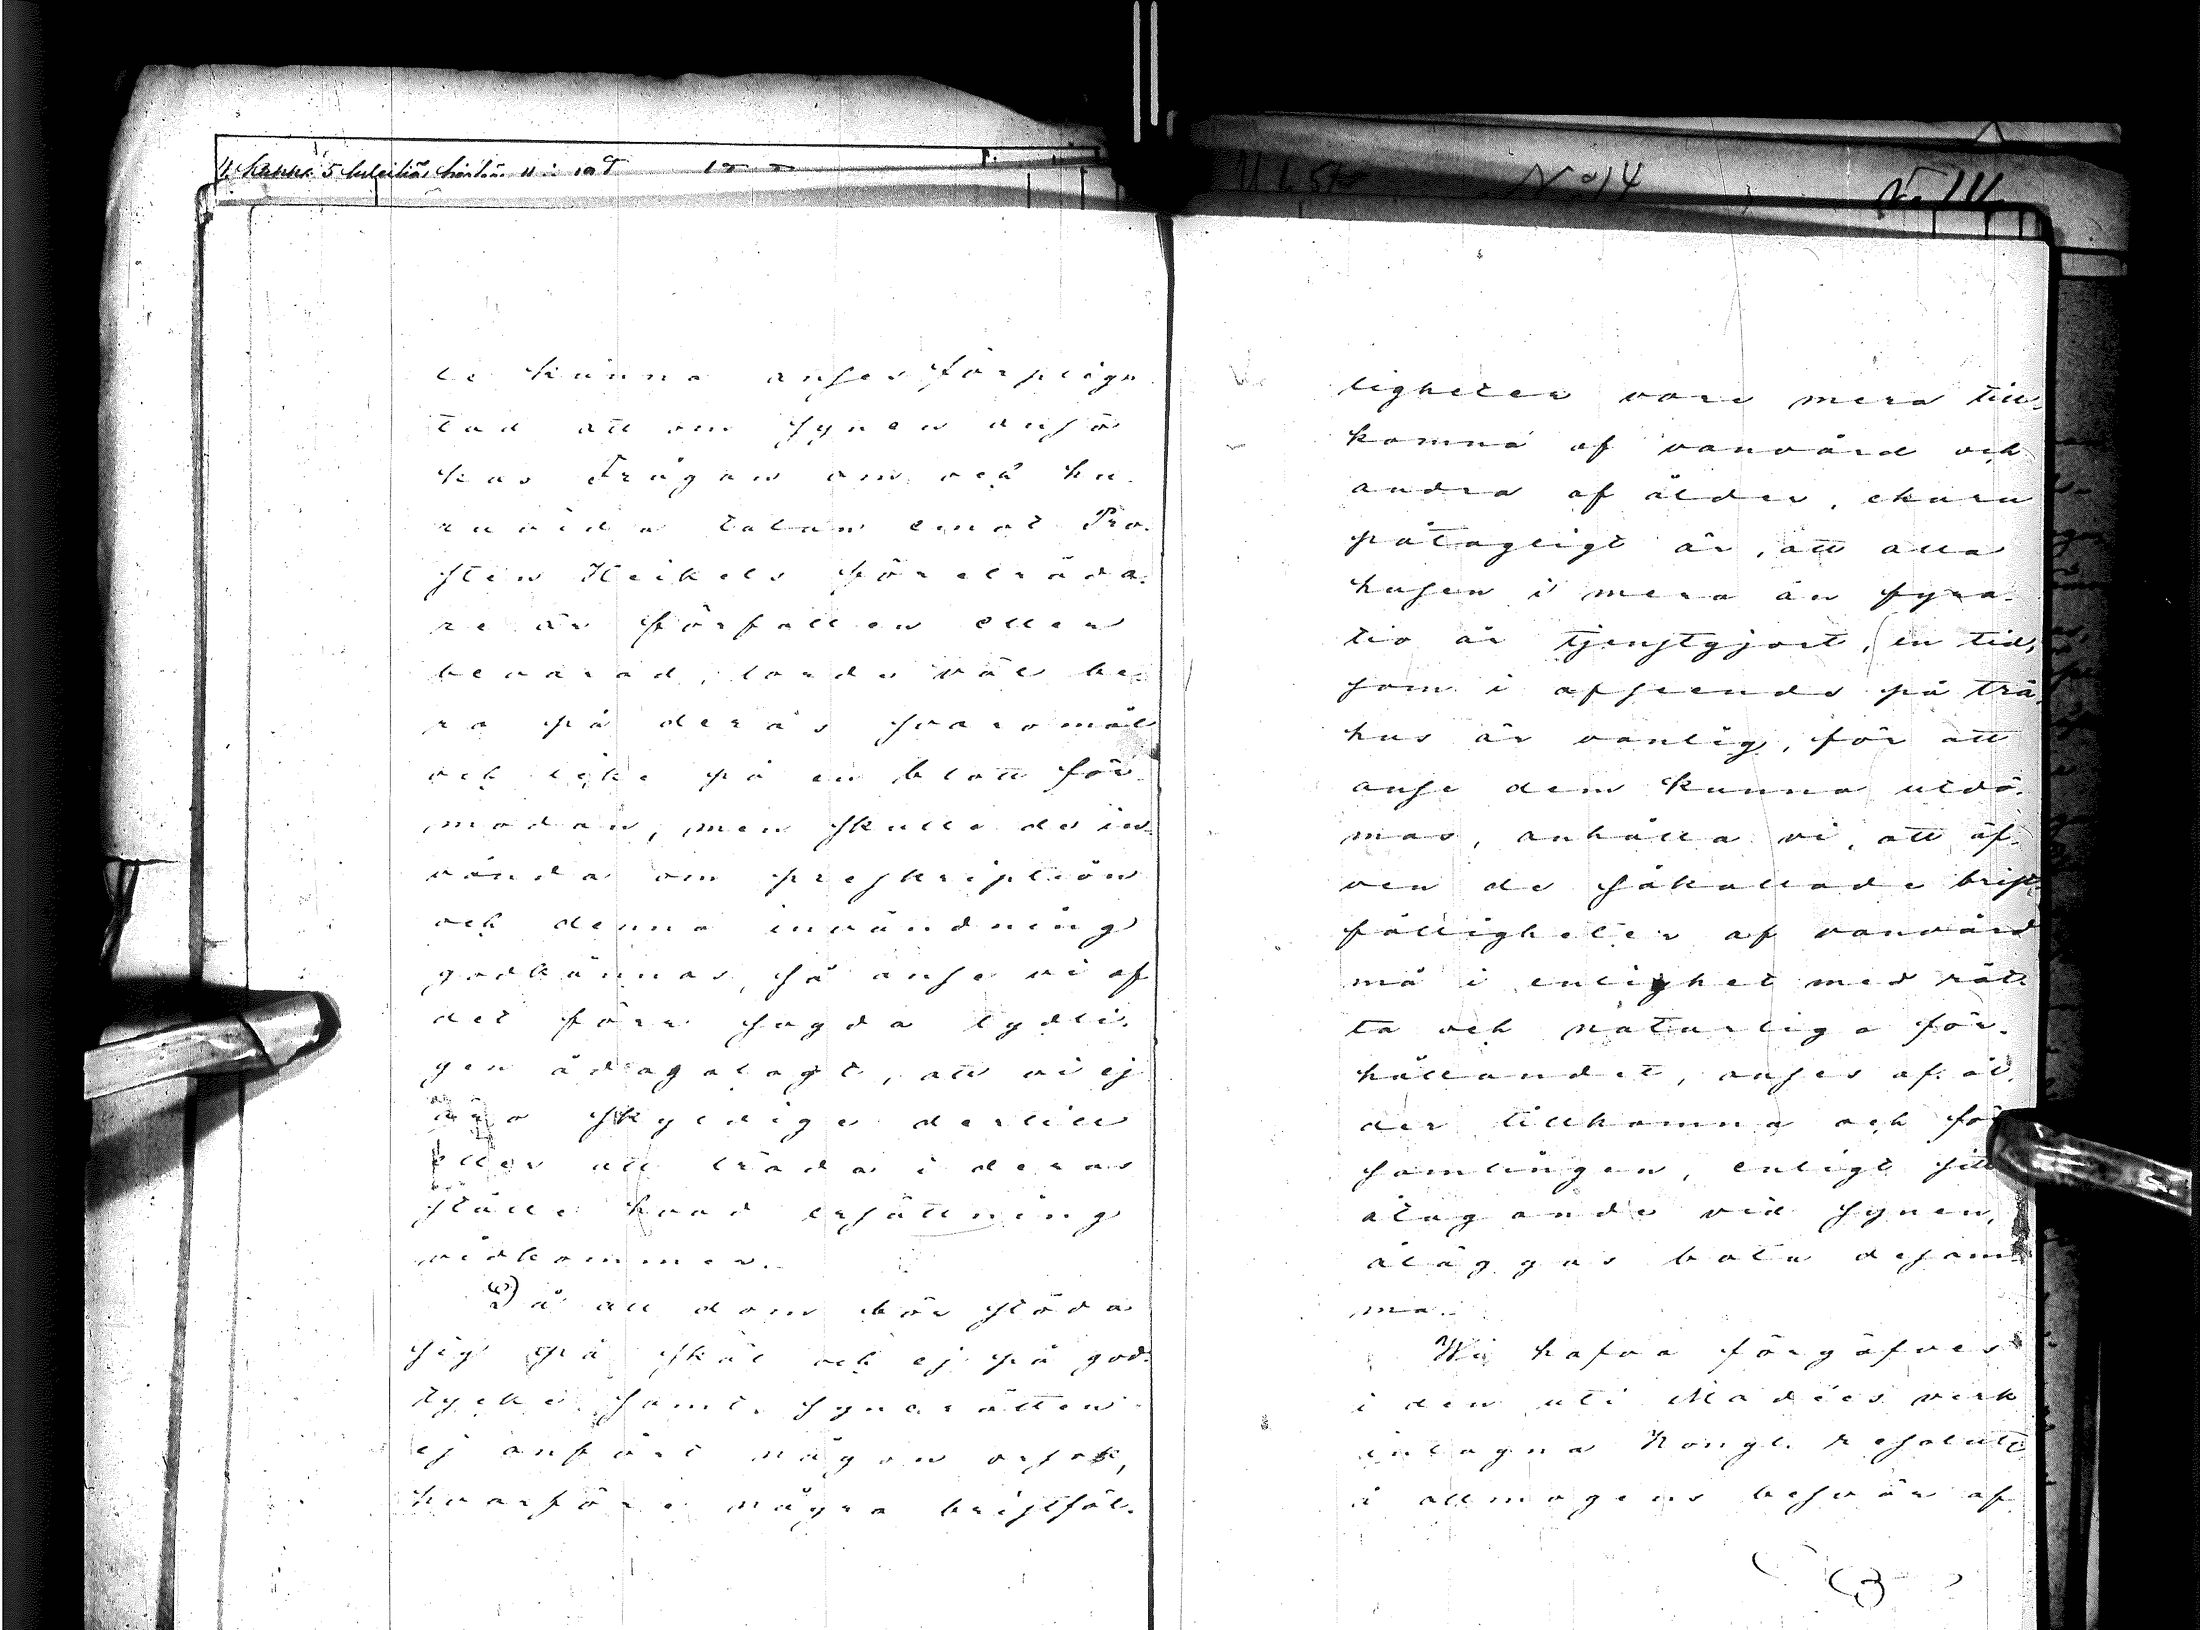 le kunna anses förpligtad
tad att om synen ansö
kas Frågan om och hu.
ruvida talan emot Pro.
sten Heikels företräda.
re är förfallen eller
bevarad, torde väl be.
ro på deras svaromål
och icke på en blott för.
modan, men skulle de in
vända om preskription
och denna invändning
godkännas, så anse vi af
det förr sagda tydli.
gen ådagalagt, att vi ej
äro skyldige dertill
eller att träda i deras
ställe hvad ersättning
vidkommer.
Då all dom bör stöda
sig på skäl och ej på god.
tycke samt synerätten
ej anfört någon orsak,
hvarföre några bristfäl.
No 14
ligheter vore mera till.
komna af vanvård och
andra af ålder, ehuru
påtagligt är, att alla
husen i mera än fyra.
tio år tjenstgjort, en tid,
som i afseende på trä
hus är vanlig, för att
anse dem kunna utdö.
mas, anhålla vi, att äf.
ven de såkallade brist
fälligheter af vanvård
må i enlighet med rät
ta och naturliga för.
hållandet, anses af ål.
der tillkomna och för
samlingen, enligt sitt
åtagande vid synen,
åläggas bota desam
ma.
Wi hafva förgäfves
i den uti Modées verk
intagna Kongl. resolut
å allmogens besvär af